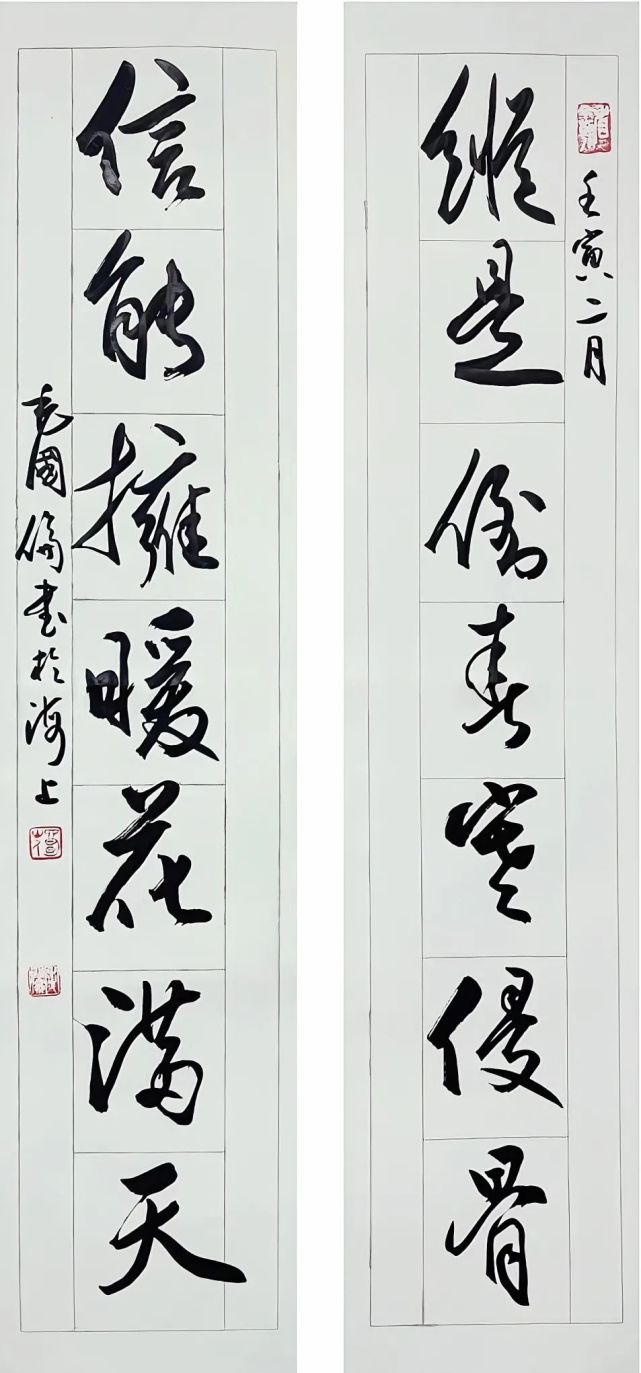 壬寅二月
縱是倒春寒侵骨
信能擁暖花滿天
毛國倫書於海上